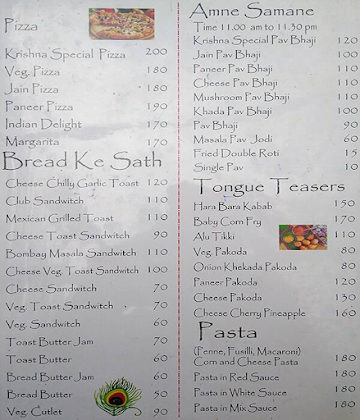 Pizza
Krishna Special Pizza 200
Veg. Pizza 180
Jain Pizza 180
Paneer Pizza 190
Indian Delight 170
Margarita 170
Bread Ke Sath
Cheese Chilly Garlic Toast 120
Club Sandwitch 110
Mexican Grilled Toast 110
Cheese Toast Sandwitch 90
Bombay Masala Sandwitch 110
Cheese Veg. Toast Sandwitch 100
Cheese Sandwitch 70
Veg. Toast Sandwitch 70
Veg. Sandwitch 60
Toast Butter Jam 70
Toast Butter 60
Bread Butter Jam 60
Bread Butter 50
Veg. Cutlet 90
Amne Samane
Time 11.00 am to 11.30 pm
Krishna Special Pav Bhaji 120
Jain Pav Bhaji 100
Paneer Pav Bhaji 110
Cheese Pav Bhaji 110
Mushroom Pav Bhaji 110
Khada Pav Bhaji 100
Pav Bhaji 90
Masala Pav Jodi 60
Fried Double Roti 15
Single Pav 10
Tongue Teasers
Hara Bara Kabab 150
Baby Corn Fry 170
Alu Tikki 110
Veg. Pakoda 80
Onion Khekada Pakoda 80
Paneer Pakoda 120
Cheese Pakoda 130
Cheese Cherry Pineapple 160
Pasta
(Penne, Fusilli, Macaroni)
Corn and Cheese Pasta 180
Pasta in Red Sauce 180
Pasta in White Sauce 180
Pasta in Mix Sauce 180